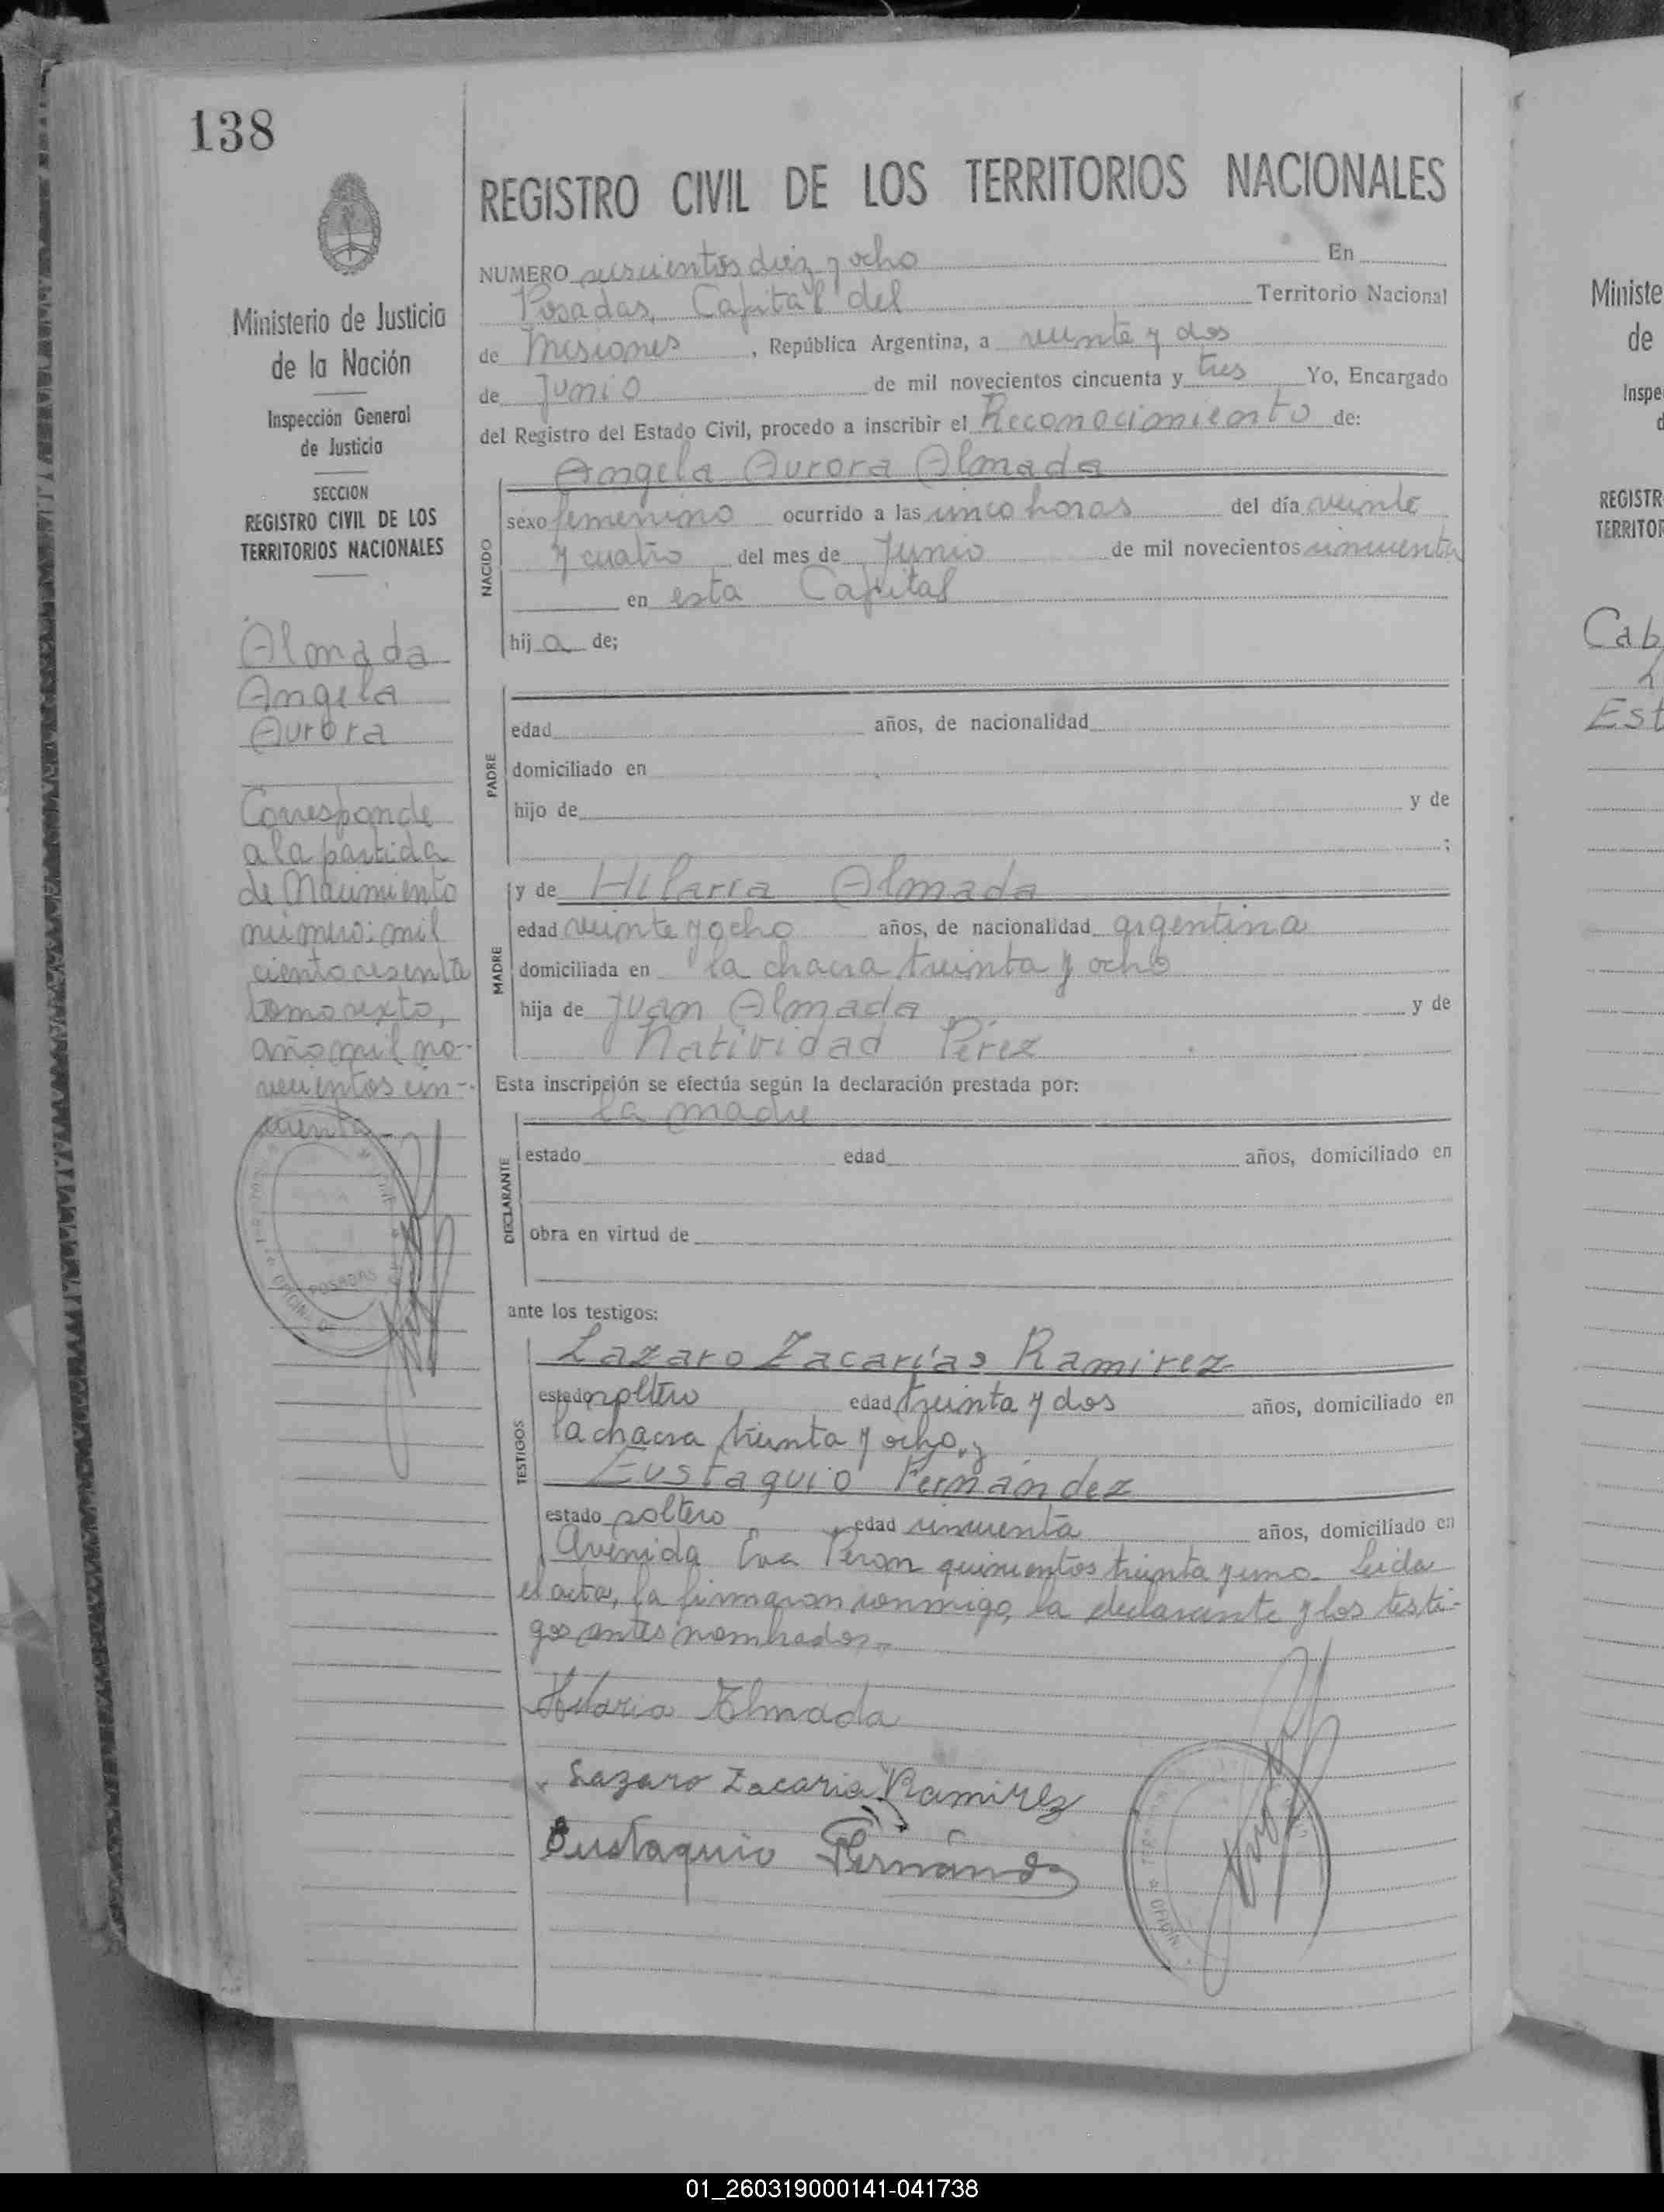 138
REGISTRO CIVIL DE LOS TERRITORIOS NACIONALES
Ministerio de Justicia
de la Nación
Inspección General
de Justicia
SECCION
REGISTRO CIVIL DE LOS
TERRITORIOS NACIONALES
Almada
Angela
Aurora
Corresponde
a la partida
de Nacimiento
número: mil
ciento sesenta
tomo sexto,
año mil no-
vecientos cin-
cuenta
POSADAS
NUMERO seiscientos diez y ocho En
Posadas, Capital del Territorio Nacional
de Misiones, República Argentina, a veinte y dos
de Junio de mil novecientos cincuenta y tres Yo, Encargado
del Registro del Estado Civil, procedo a inscribir el Reconocimiento de:
Angela Aurora Almada
NACIDO
sexo femenino ocurrido a las cinco horas del día veinte
y cuatro del mes de Junio de mil novecientos cincuenta
en esta Capital
hij a de;
PADRE
edad años, de nacionalidad
domiciliado en
hijo de y de
;
MADRE
y de Hilaria Almada
edad veinte y ocho años, de nacionalidad argentina
domiciliada en la chacra treinta y ocho
hija de Juan Almada y de
Natividad Pérez
Esta inscripción se efectúa según la declaración prestada por:
la madre
DECLARANTE
estado edad años, domiciliado en
obra en virtud de
ante los testigos:
TESTIGOS
Lazaro Zacarías Ramirez
estado soltero edad treinta y dos años, domiciliado en
la chacra treinta y ocho, y
Eustaquio Fernández
estado soltero edad cincuenta años, domiciliado en
Avenida Eva Peron quinientos treinta y uno. Leída
el acta, la firmaron conmigo, la declarante y los testi-
gos antes nombrados.-
Hilaria Almada
Lazaro Zacaria Ramirez
Eustaquio Fernández
Ministe
de
Inspe
d
REGISTR
TERRITOR
Cab
Est
01_260319000141-041738